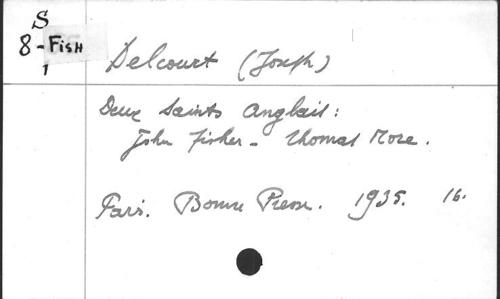 S
8-FISH
1
Delcourt (Joseph)
Deux Saints Anglais:
John Fisher - Thomas More.
Paris. Bonne Presse. 1935. 16.